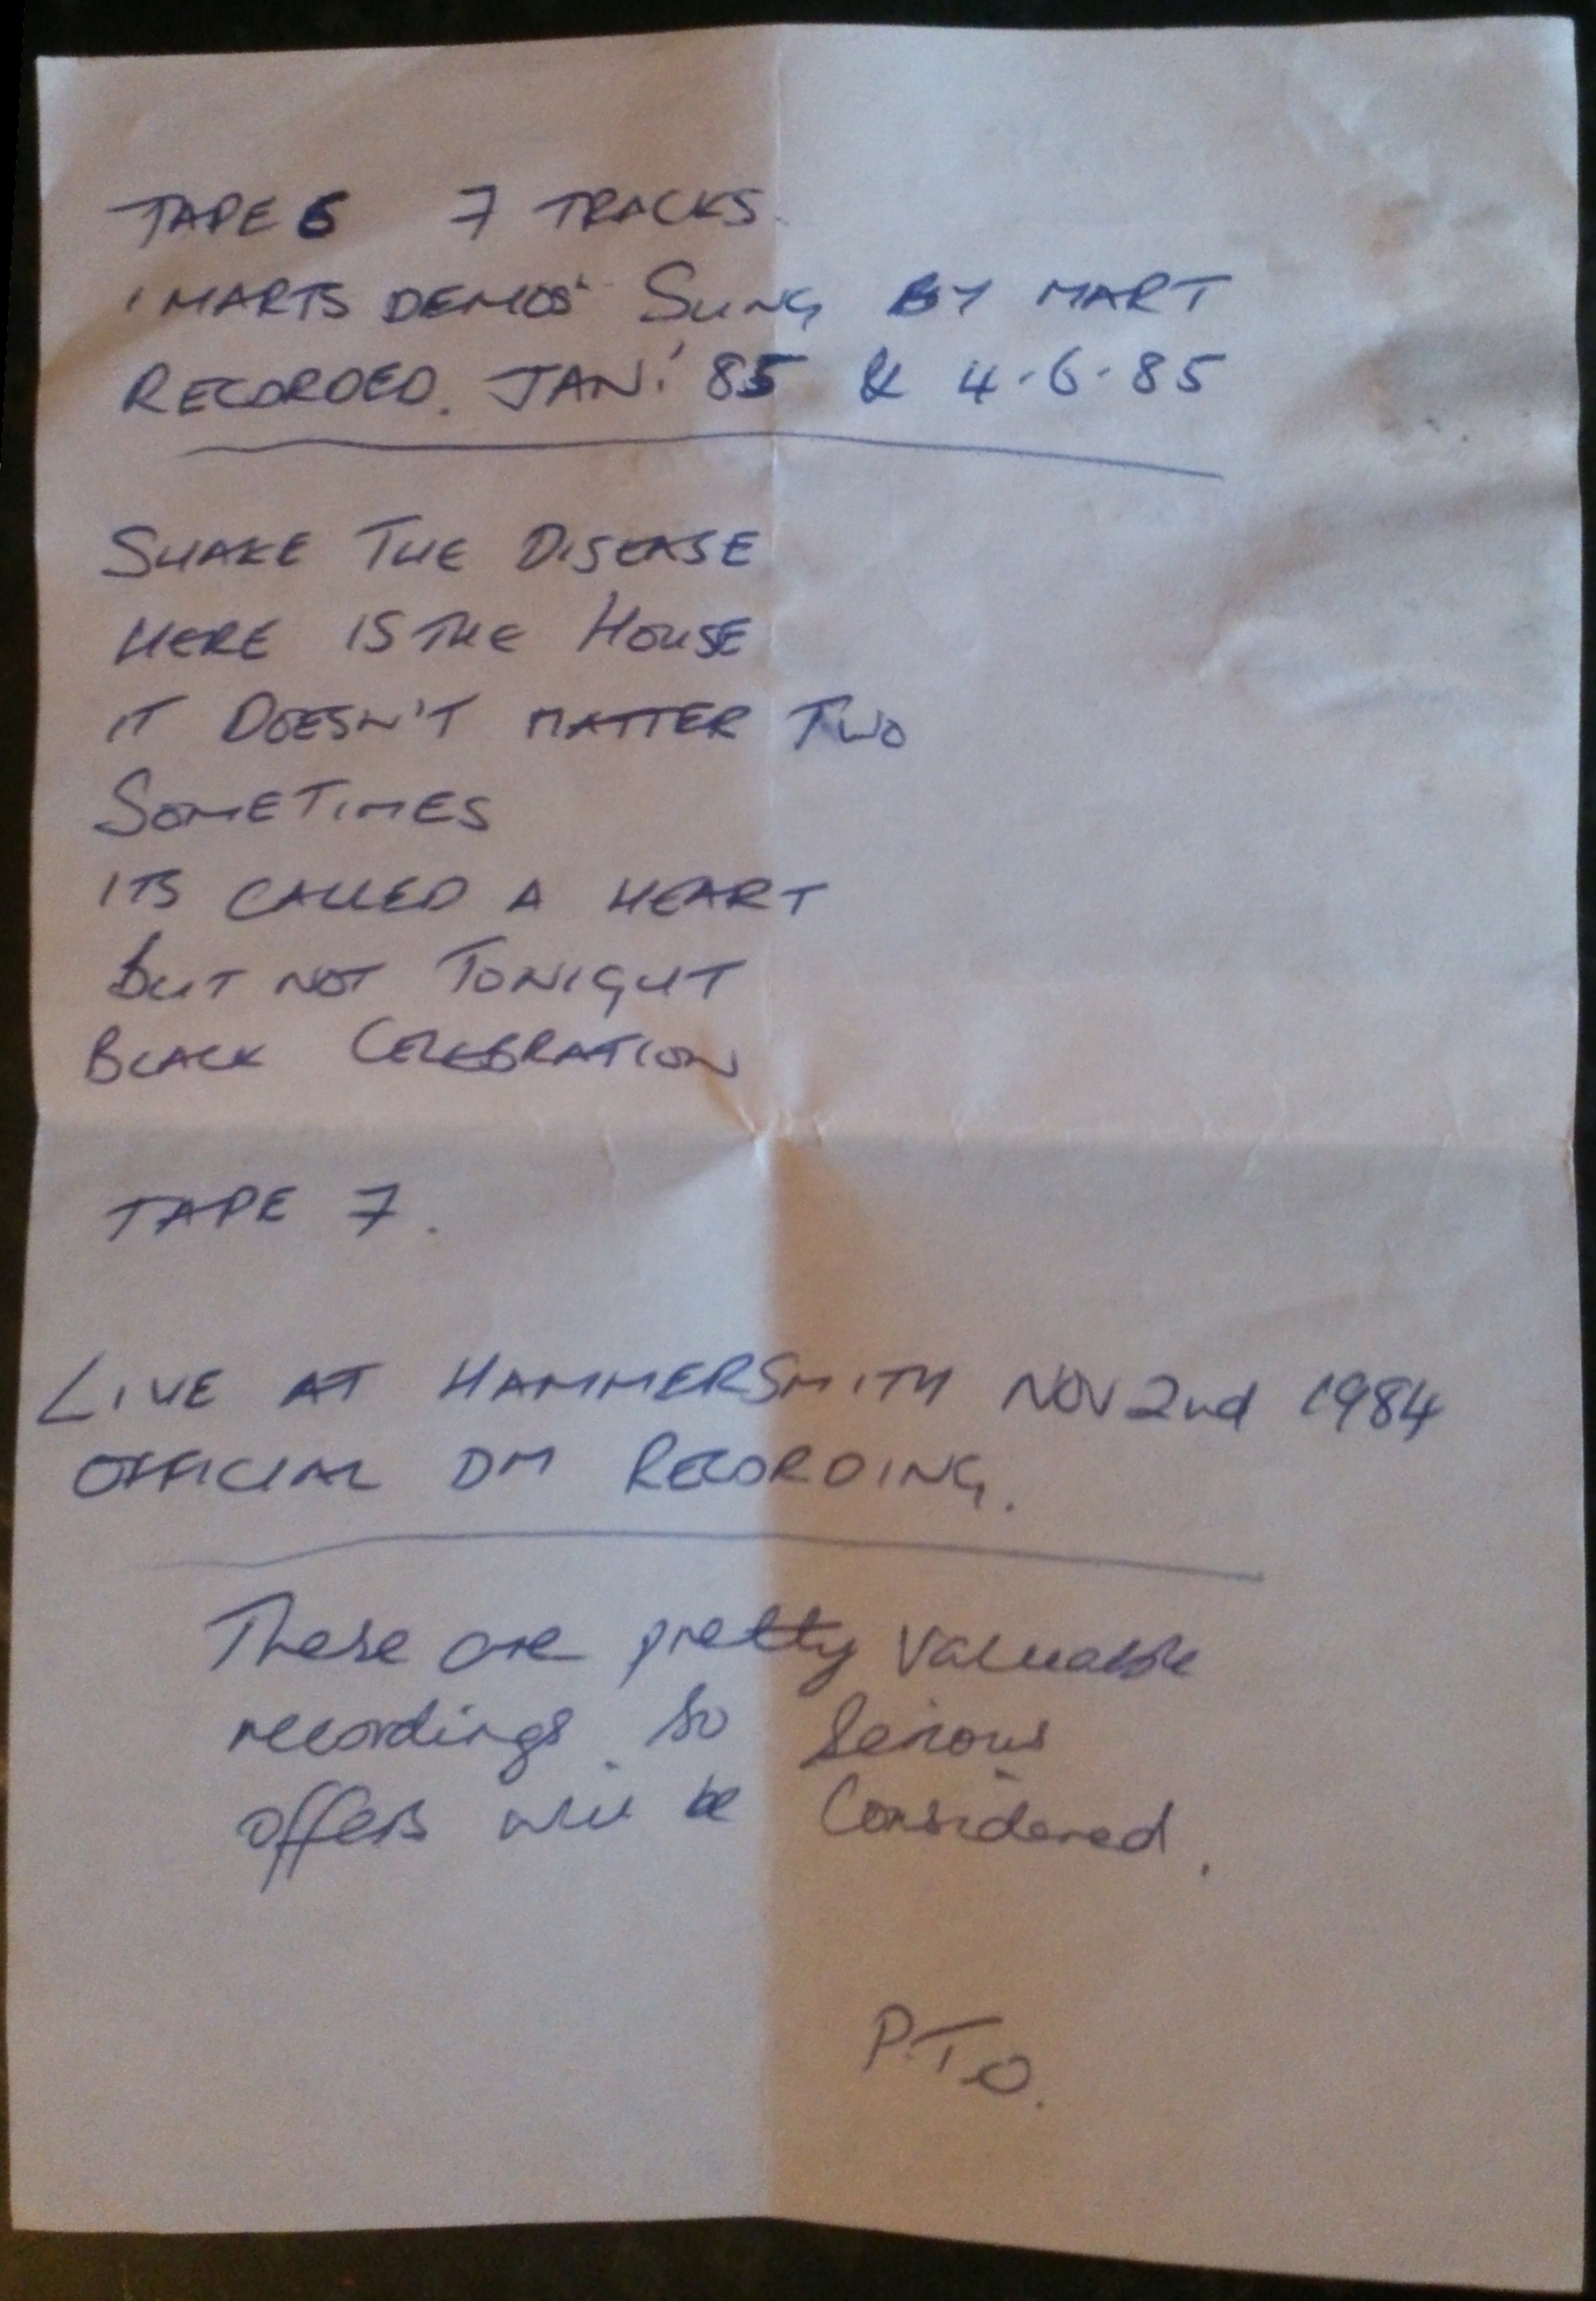 TAPE 6 7 TRACKS.
'MARTS DEMOS' SUNG BY MART
RECORDED. JAN.' 85 & 4.6.85
SHAKE THE DISEASE
HERE IS THE HOUSE
IT DOESN'T MATTER TWO
SOMETIMES
ITS CALLED A HEART
BUT NOT TONIGHT
BLACK CELEBRATION
TAPE 7.
LIVE AT HAMMERSMITH NOV 2nd 1984
OFFICIAL DM RECORDING.
These are pretty valuable
recordings. So Serious
offers will be Considered.
P.T.O.